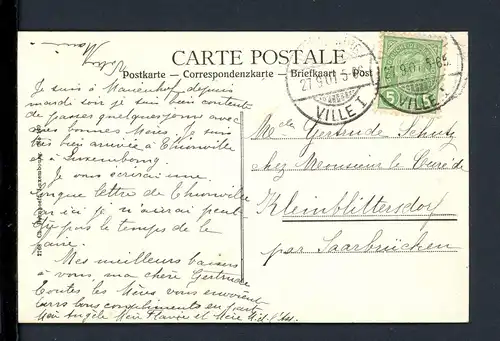 CARTE POSTALE
Postkarte — Correspondenzkarte — Briefkaart — Post
27.9.07. 5-6S
VILLE 1
27.9.07. 5-6S
VILLE 1
5
Je suis à Marienhof depuis
mardi soir je suis bien contente
de passer quelques jours avec
bonnes Mères. Je suis
bien arrivée à Thionville
et à Luxembourg.
Je vous écrirai une
longue lettre de Thionville
car ici je n'aurai peut-
être pas le temps de le
faire.
Mes meilleurs baisers
à vous, ma chère Gertrude
Toutes les Mères vous envoient
leurs bons compliments en part.
Mère Angèle Mère Flavie et Mère
Melle Gertrude Schutz
chez Monsieur le Curé de
Kleinblittersdorf
par Saarbrücken